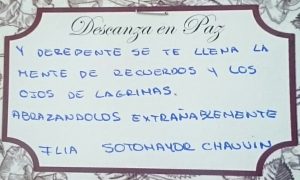 Descanza en Paz
Y DEREPENTE SE TE LLENA LA
MENTE DE RECUERDOS Y LOS
OJOS DE LAGRIMAS.
ABRAZANDOLOS EXTRAÑABLEMENTE
FLIA SOTOMAYOR CHAUVIN